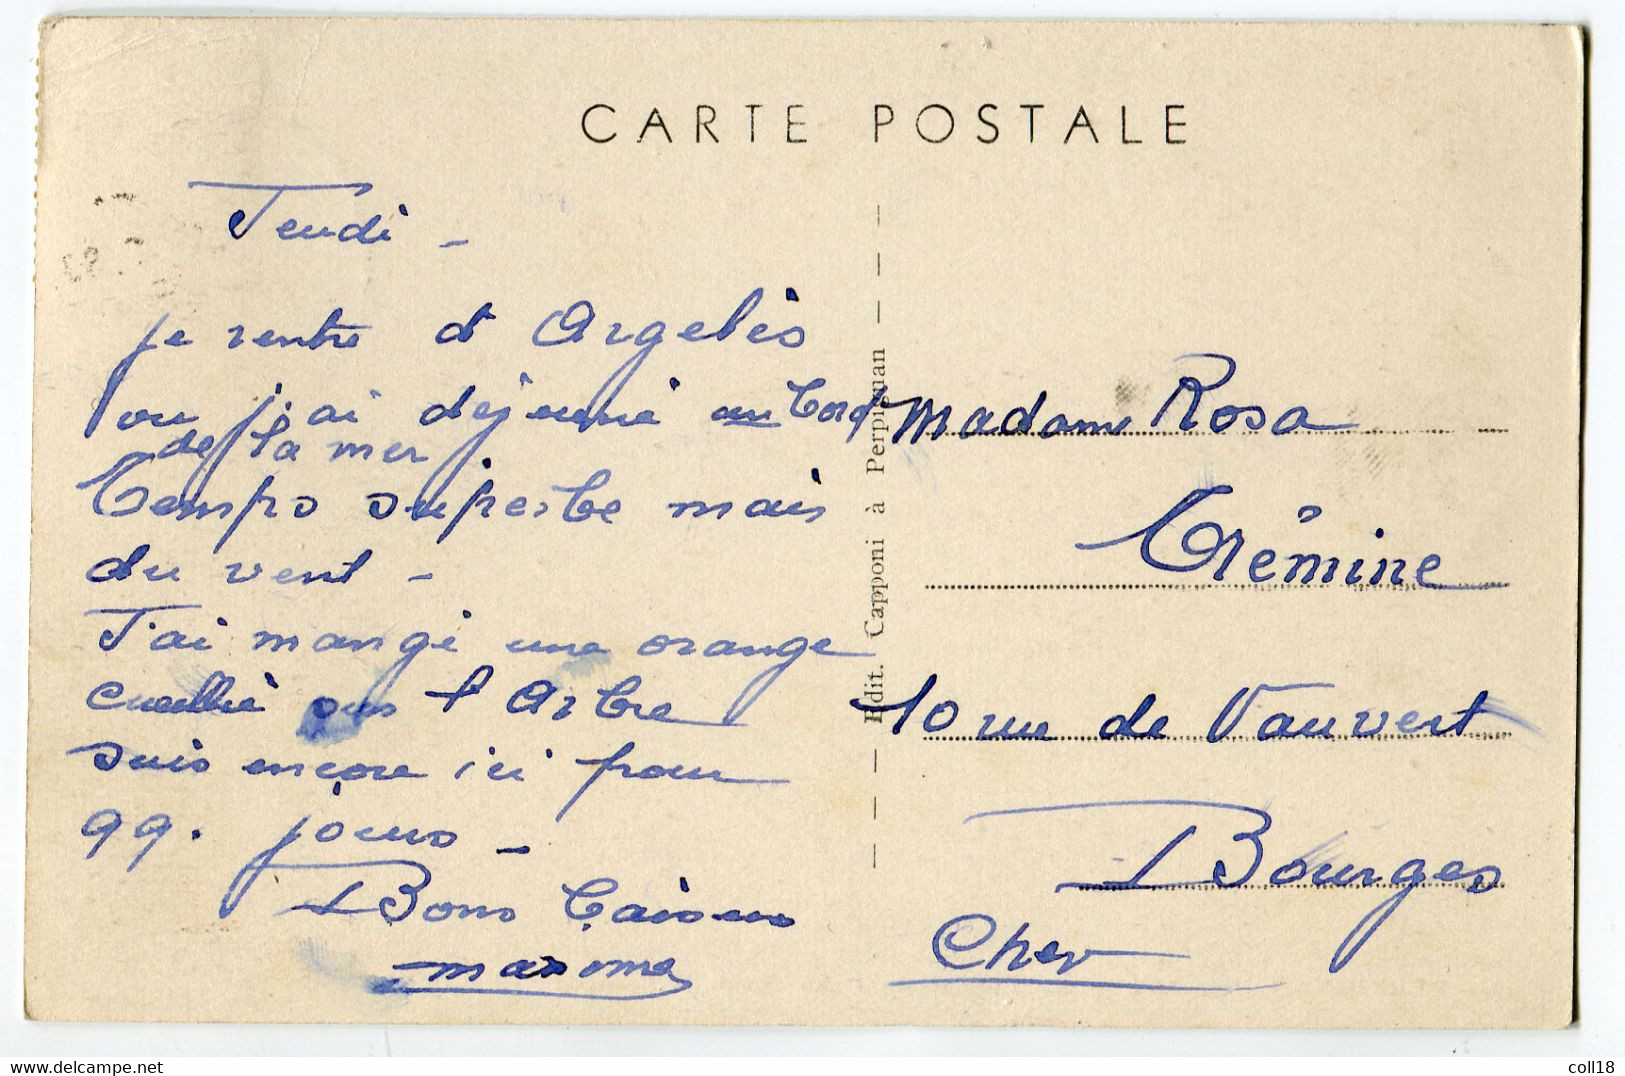 CARTE POSTALE
Jeudi -
je rentre d'Argelès
ou j'ai déjeuné au bord
de la mer
Temps superbe mais
du vent -
J'ai mangé une orange
cueillie sur l'Arbre
suis encore ici pour
qq. jours -
Bons baisers
Edit. Capponi à Perpignan
Madame Rosa
Trémine
10 rue de Vauvert
Bourges
Cher
www.delcampe.net
coll18